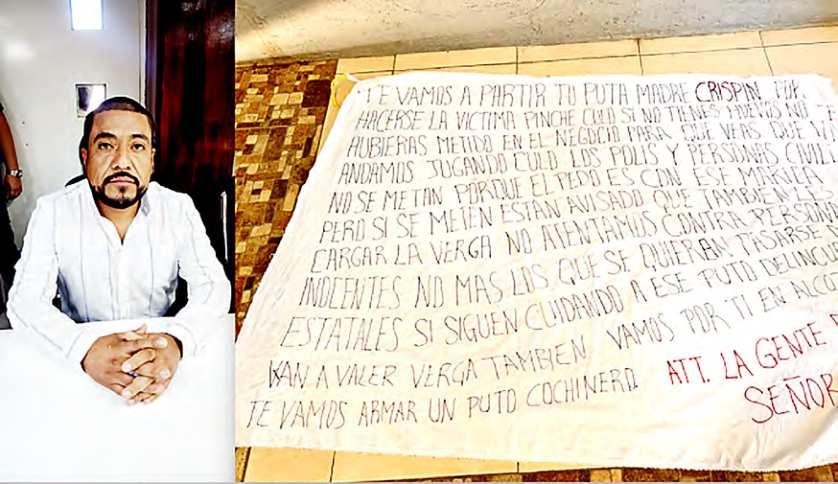 TE VAMOS A PARTIR TU PUTA MADRE CRISPIN POR
HACERSE LA VICTIMA PINCHE CULO SI NO TIENES HUEVOS NO T
HUBIERAS METIDO EN EL NEGOCIO PARA QUE VERAS QUE
ANDAMOS JUGANDO CULO LOS POLIS Y PERSONAS CIVIL
NO SE METAN PORQUE EL PEDO ES CON ESE MARICA
PERO SI SE METEN ESTAN AVISADO QUE TAMBIEN LES
CARGAR LA VERGA NO ATENTAMOS CONTRA PERSONA
INOCENTES NO MAS LOS QUE SE QUIERAN PASARSE
ESTATALES SI SIGUEN CUIDANDO A ESE PUTO DELINCU
VAN A VALER VERGA TAMBIEN VAMOS POR TI EN ALCO
TE VAMOS ARMAR UN PUTO COCHINERO. ATT. LA GENTE
SEÑOR